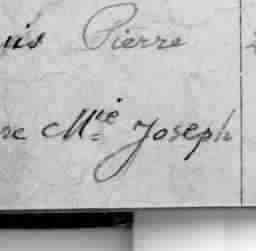 uis Pierre
re Mie Joseph